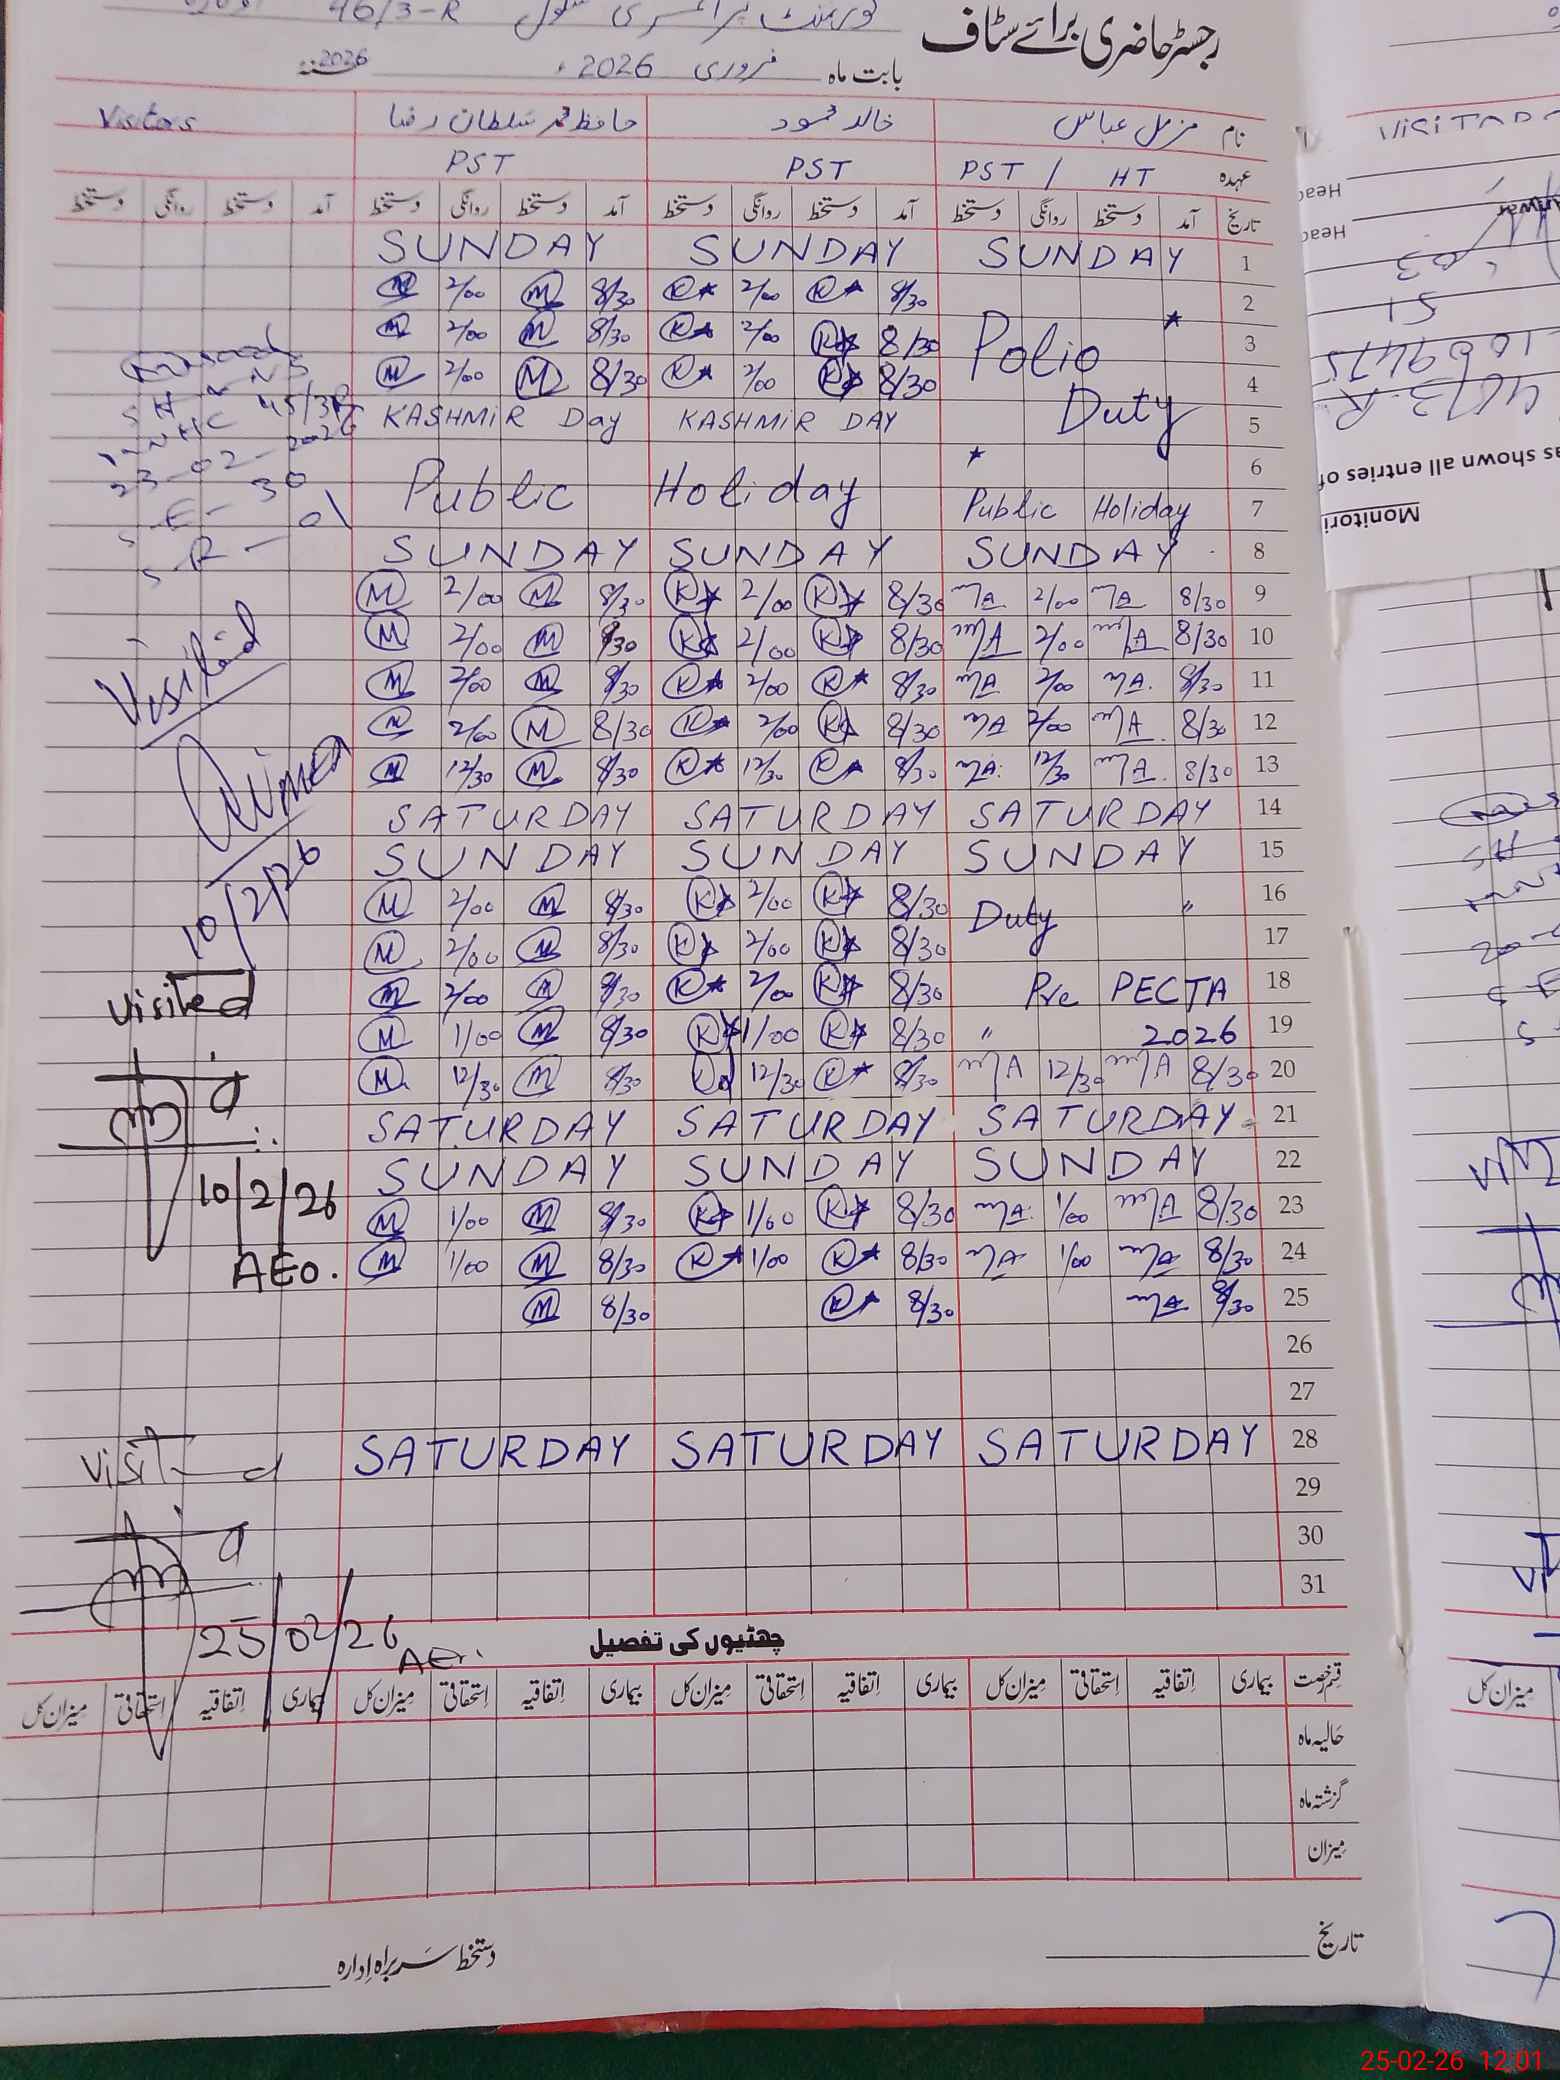 رجسٹر حاضری برائے سٹاف
گورنمنٹ پرائمری سکول 46/3-R
بابت ماہ فروری 2026ء 2026
نام مزمل عباس خالد محمود حافظ محمد سلطان رضا Visitors
عہدہ PST / HT PST PST
تاریخ آمد دستخط روانگی دستخط آمد دستخط روانگی دستخط آمد دستخط روانگی دستخط آمد دستخط روانگی دستخط
1 SUNDAY SUNDAY SUNDAY
2 8/30 K 2/00 K 8/30 M 2/00 M
3 Polio 8/30 K 2/00 K 8/30 M 2/00 M
4 8/30 K 2/00 K 8/30 M 2/00 M
5 Duty KASHMIR DAY KASHMIR Day
6
7 Public Holiday Public Holiday
8 SUNDAY SUNDAY SUNDAY
9 8/30 MA 2/00 MA 8/30 K 2/00 K 8/30 M 2/00 M
10 8/30 MA 2/00 MA 8/30 K 2/00 K 8/30 M 2/00 M
11 8/30 MA 2/00 MA 8/30 K 2/00 K 8/30 M 2/00 M
12 8/30 MA 2/00 MA 8/30 K 2/00 K 8/30 M 2/00 M
13 8/30 MA 12/30 MA 8/30 K 12/30 K 8/30 M 12/30 M
14 SATURDAY SATURDAY SATURDAY
15 SUNDAY SUNDAY SUNDAY
16 Duty " 8/30 K 2/00 K 8/30 M 2/00 M
17 8/30 K 2/00 K 8/30 M 2/00 M
18 Pre PECTA 8/30 K 2/00 K 8/30 M 2/00 M
19 " 2026 8/30 K 1/00 K 8/30 M 1/00 M
20 8/30 MA 12/30 MA 8/30 K 12/30 K 8/30 M 12/30 M
21 SATURDAY SATURDAY SATURDAY
22 SUNDAY SUNDAY SUNDAY
23 8/30 MA 1/00 MA 8/30 K 1/00 K 8/30 M 1/00 M
24 8/30 MA 1/00 MA 8/30 K 1/00 K 8/30 M 1/00 M
25 8/30 MA 8/30 K 8/30 M
26
27
28 SATURDAY SATURDAY SATURDAY
29
30
31
45/3R
23-02-2026
S-E-30
S-R-01
Visited
10/2/26
Visited
10/2/26
AEO.
Visited
25/02/26
AEO.
چھٹیوں کی تفصیل
قسم رخصت بیماری اتفاقیہ استحقاقی میزان کل بیماری اتفاقیہ استحقاقی میزان کل بیماری اتفاقیہ استحقاقی میزان کل بیماری اتفاقیہ استحقاقی میزان کل
حالیہ ماہ
گزشتہ ماہ
میزان
تاریخ
دستخط سربراہ ادارہ
Head
Head
51
46/3-R
as shown all entries of
Monitori
میزان کل
25-02-26 12:01